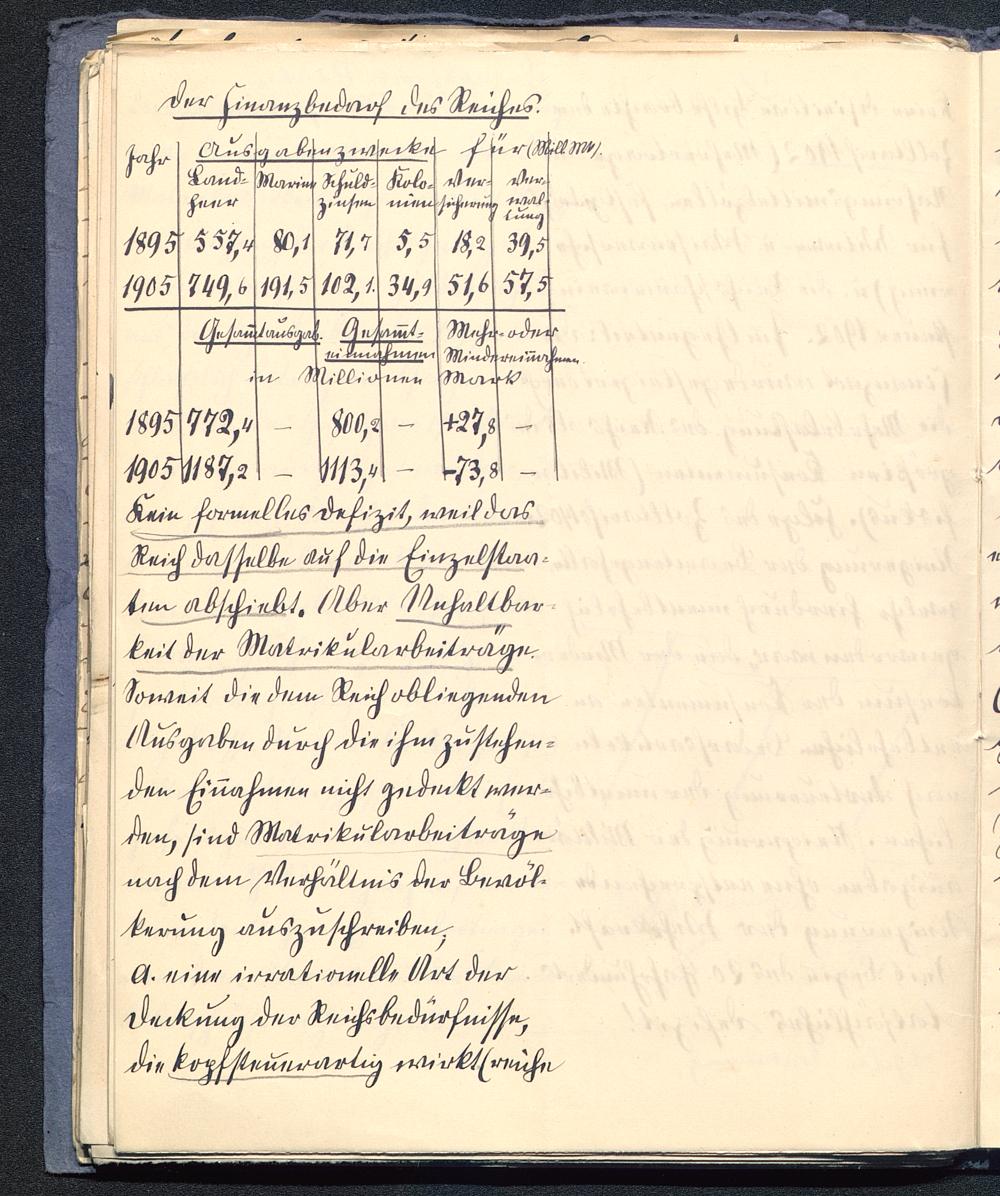 Der Finanzbedarf des Reiches.
Jahr Ausgabenzwecke für (Mill Mk).
Land- Marine Schuld- Kolo- Ver- Ver-
heer zinsen nien sicherung wal-
tung
1895 557,4 80,1 71,7 5,5 18,2 39,5
1905 749,6 191,5 102,1. 34,9 51,6 57,5
Gesam̅tausgab. Gesam̅t- Mehr- oder
ein̅ahmen Mindereinnahmen.
in Millionen Mark
1895 772,4 – 800,2 – +27,8 –
1905 1187,2 – 1113,4 – -73,8 –
Kein formelles Defizit, weil das
Reich dasselbe auf die Einzelstaa-
ten abschiebt. Aber Unhaltbar-
keit der Matrikularbeiträge.
Soweit die dem Reich obliegenden
Ausgaben durch die ihm zustehen-
den Ein̅ahmen nicht gedeckt wer-
den, sind Matrikularbeiträge
nach dem Verhältnis der Bevöl-
kerung auszuschreiben;
a. eine irrationelle Art der
Deckung der Reichsbedürfnisse,
die kopfsteuerartig wirkt (reiche